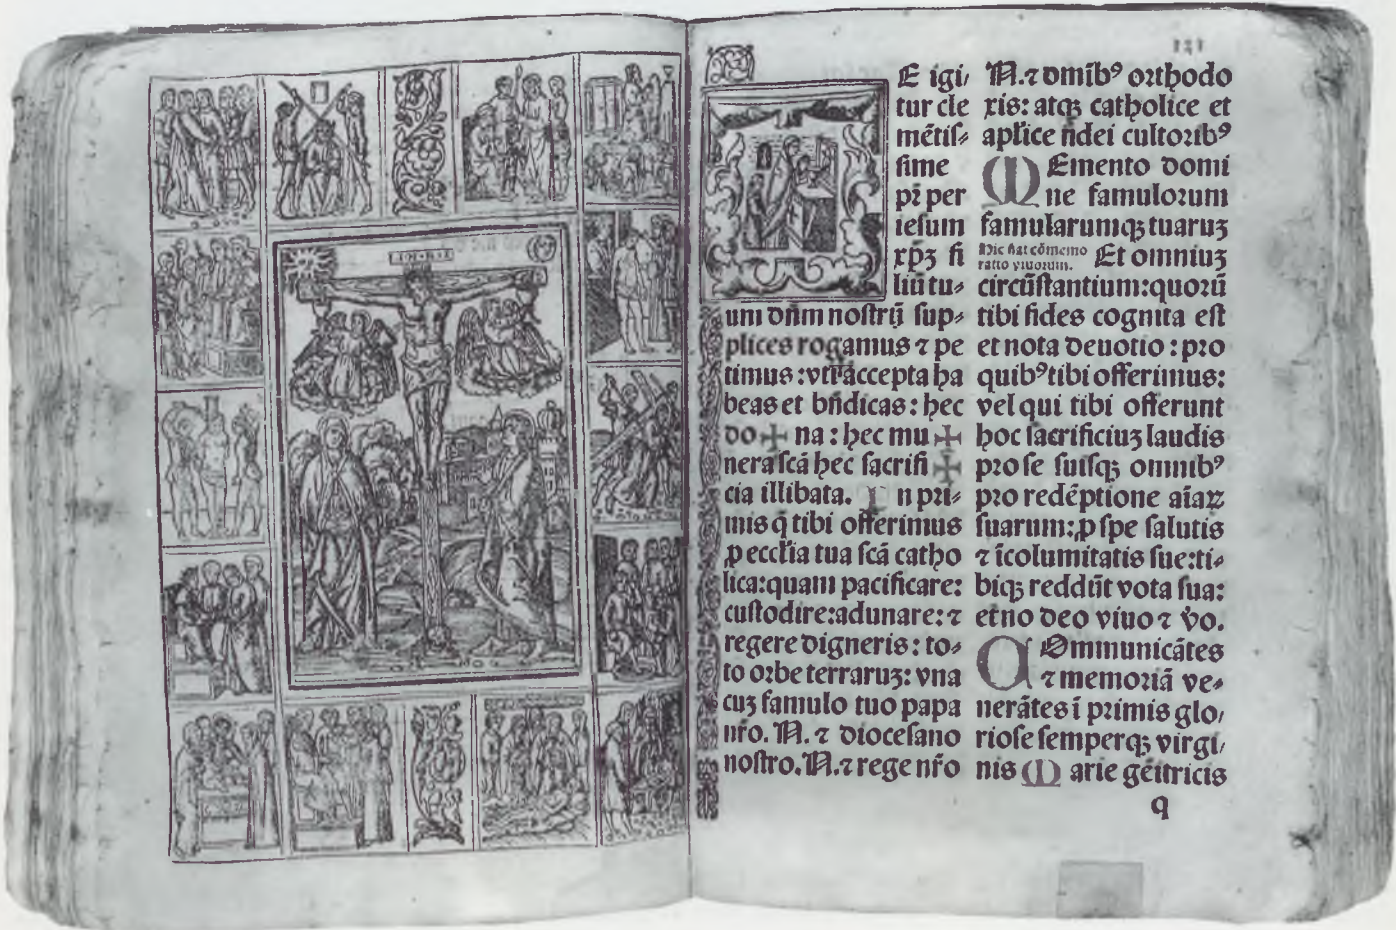 I·N·R·I
121
E igi/
tur cle
mētiſ⸗
ſime
pr̄ per
ieſum
xp̄ꝫ fi
liū tu⸗
um dn̄m noſtrū ſup⸗
plices rogamus ⁊ pe
timus :vti accepta ha
beas et bn̄dicas : hec
do ✠ na : hec mu ✠
nera ſcā hec ſacrifi ✠
cia illibata. In pri⸗
mis q̄ tibi offerimus
ꝓ eccl̄ia tua ſcā catho
lica:quam pacificare:
cuſtodire:adunare: ⁊
regere digneris : to⸗
to orbe terraruꝫ: vna
cuꝫ famulo tuo papa
nr̄o. N. ⁊ dioceſano
noſtro. N. ⁊ rege nr̄o
N. ⁊ omībꝰ orthodo
xis: atqꝫ catholice et
apl̄ice fidei cultoribꝰ
MEmento domi
ne famulorum
famularumqꝫ tuaruꝫ
Hic fiat cōmemo
ratio viuorum. Et omniuꝫ
circūſtantium:quorū
tibi fides cognita eſt
et nota deuotio : pro
quibꝰ tibi offerimus:
vel qui tibi offerunt
hoc ſacrificiuꝫ laudis
pro ſe ſuiſqꝫ omnibꝰ
pro redēptione aīaꝝ
ſuarum: ꝓ ſpe ſalutis
⁊ īcolumitatis ſue:ti⸗
biqꝫ reddūt vota ſua:
etno deo viuo ⁊ v̄o.
COmmunicātes
⁊ memoriā ve⸗
nerātes ī primis glo/
rioſe ſemperqꝫ virgi/
nis Marie geītricis
q